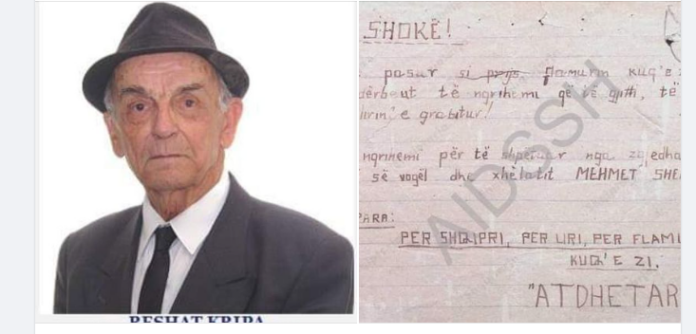 RESHAT KRIPA
SHOKË!
pasur si prijs flamurin kuq'e
të ngrihemi që të gjith, të
e grabitur!!
ngrihemi për të shpëtuar nga zgjedha
së vogël dhe xhelatit MEHMET SHE
PARA:
PER SHQIPRI, PER LIRI, PER FLAMU
KUQ'E ZI.
"ATDHETAR
AIDSSH